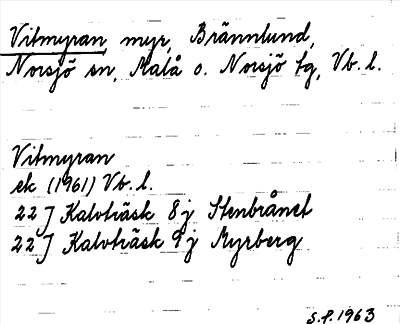 Vitmyran, myr, Brännlund,
Norsjö sn, Malå o. Norsjö tg, Vb. l.
Vitmyran
ek (1961) Vb. l.
22 J Kalvträsk 8 j Stenbrånet
22 J Kalvträsk 9 j Myrberg
S.P. 1963